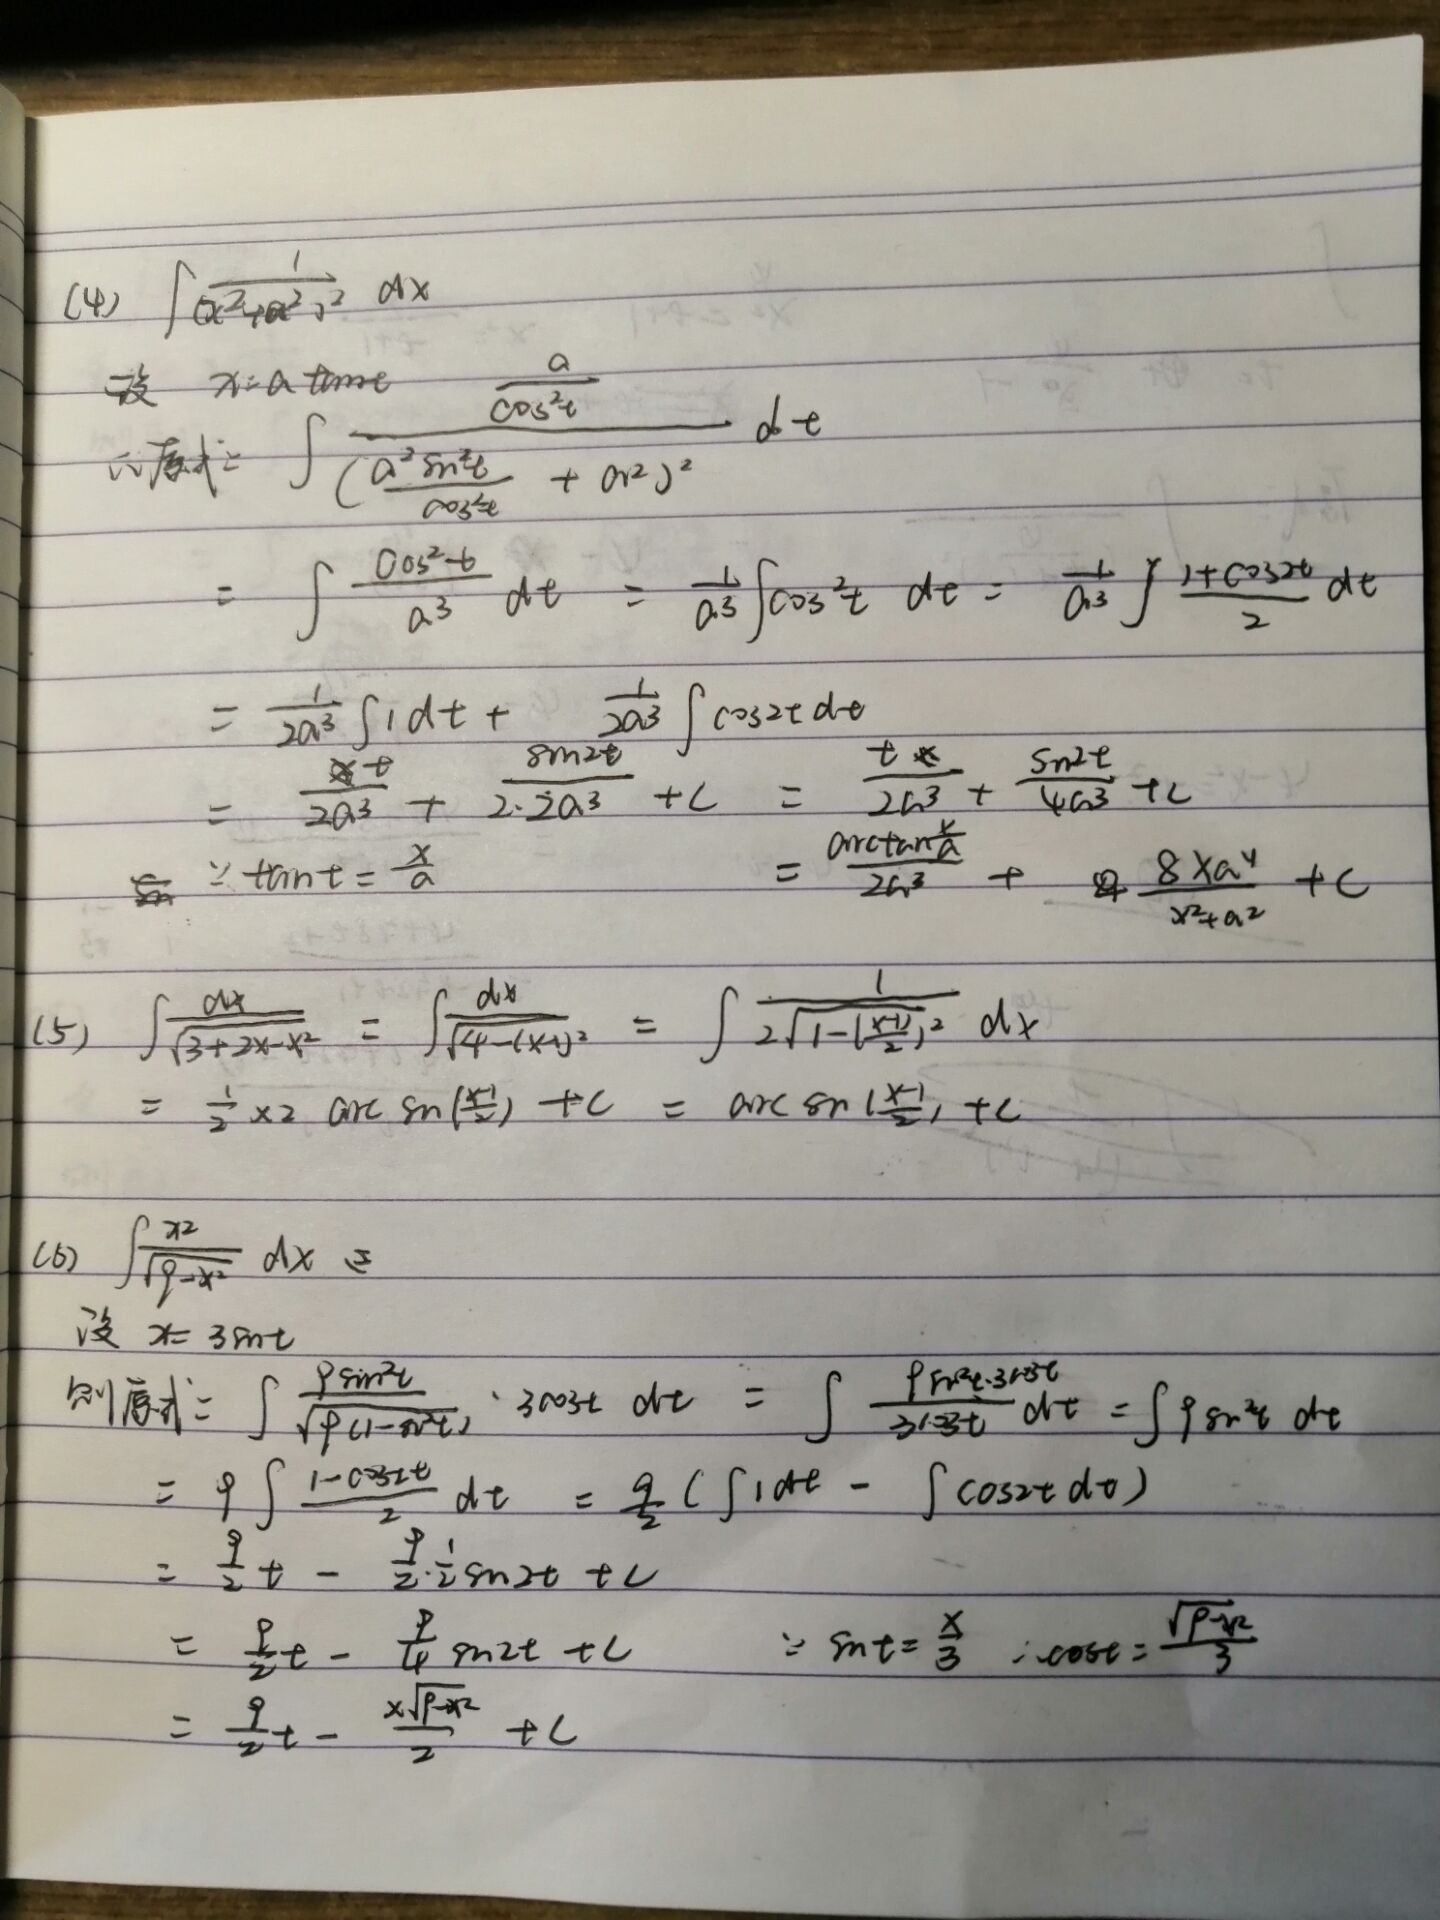 (4) ∫ 1/(x²+a²)² dx
设 x=a tant
则原式= ∫ (a/cos²t)/(a²sin²t/cos²t + a²)² dt
= ∫ cos²t/a³ dt = 1/a³ ∫cos²t dt = 1/a³ ∫ (1+cos2t)/2 dt
= 1/2a³ ∫1dt + 1/2a³ ∫cos2t dt
= t/2a³ + sin2t/2·2a³ +C = t/2a³ + sin2t/4a³ +C
∵ tant = x/a = arctan(x/a)/2a³ + 8xa⁴/(x²+a²) + C
(5) ∫ dx/√(3+2x-x²) = ∫ dx/√(4-(x-1)²) = ∫ 1/(2√(1-((x-1)/2)²)) dx
= 1/2 ×2 arc sin((x-1)/2) +C = arc sin((x-1)/2) +C
(6) ∫ x²/√(9-x²) dx =
设 x= 3sint
则原式= ∫ 9sin²t/√(9(1-sin²t)) · 3cost dt = ∫ 9sin²t·3cost/3cost dt = ∫9sin²t dt
= 9 ∫ (1-cos2t)/2 dt = 9/2 (∫1dt - ∫cos2t dt)
= 9/2 t - 9/2·1/2 sin2t +C
= 9/2 t - 9/4 sin2t +C ∵ sint= x/3 ∴cost= √(9-x²)/3
= 9/2 t - x√(9-x²)/2 +C